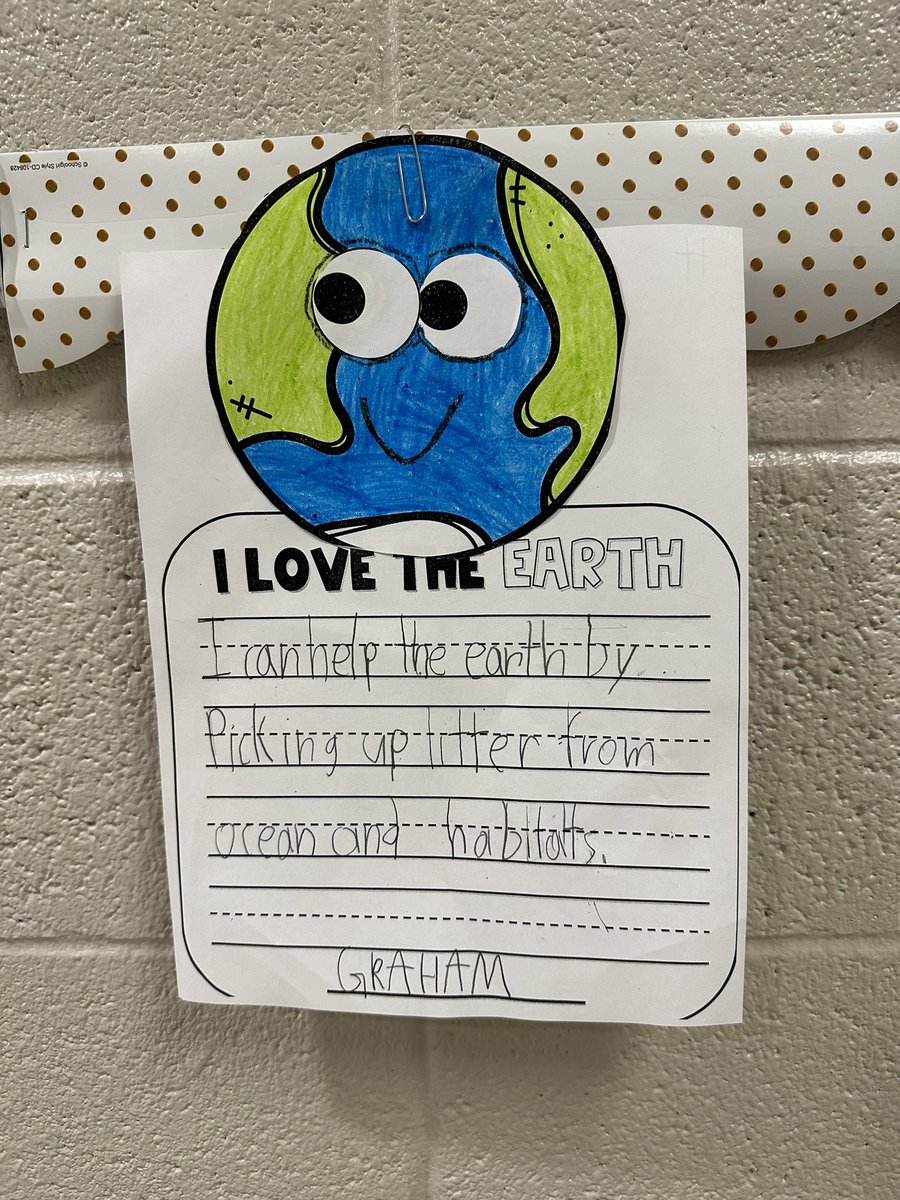 © Schoolgirl Style CD-108428
I LOVE THE EARTH
I can help the earth by
Picking up litter from
ocean and habitats.
GRAHAM